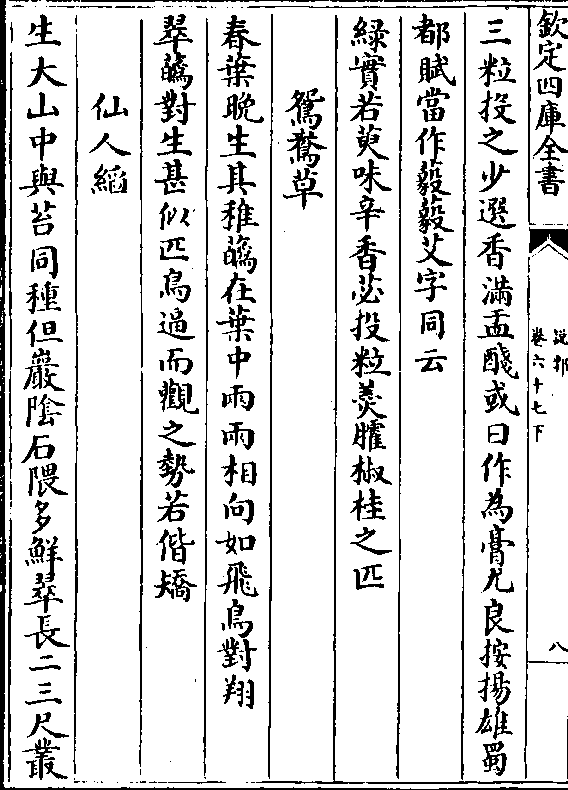 欽定四庫全書
說郛
卷六十七下
八
三粒投之少選香滿盂醆或曰作為膏尤良按揚雄蜀
都賦當作藙藙艾字同云
綠實若萸味辛香苾投粒羹臛椒桂之匹
鴛鴦草
春葉晚生其稚蘤在葉中兩兩相向如飛鳥對翔
翠蘤對生甚似匹鳥逼而觀之勢若偕矯
仙人縚
生大山中與苔同種但巖陰石隈多鮮翠長二三尺叢